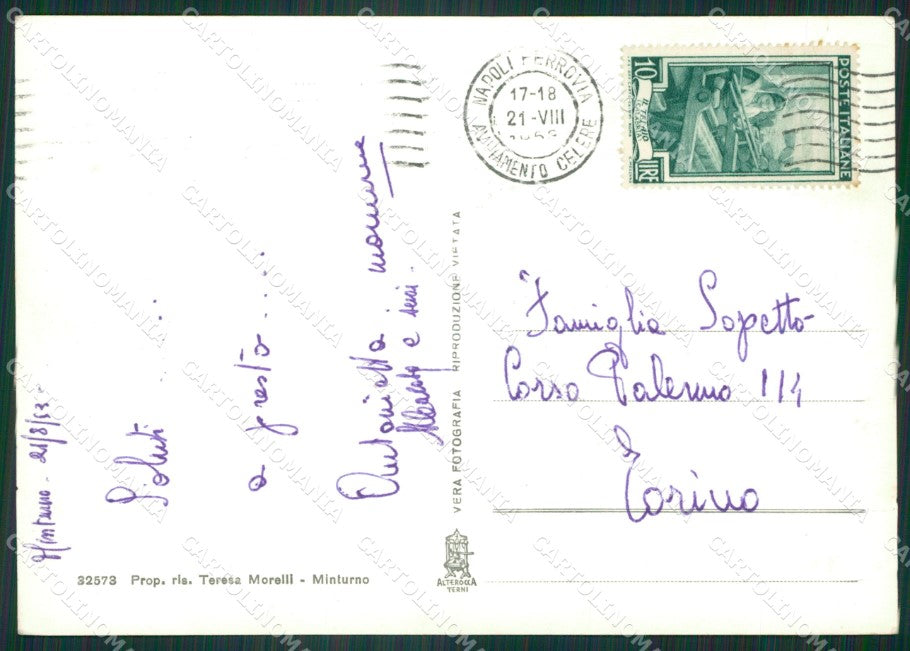 Minturno - 21/8/53
Saluti ....
a presto ....
Antonietta
Alberto e
VERA FOTOGRAFIA RIPRODUZIONE VIETATA
32573 Prop. ris. Teresa Morelli - Minturno
ALTEROCCA
TERNI
NAPOLI FERROVIA
17-18
21-VIII
1953
AVVIAMENTO CELERE
10
LIRE
POSTE ITALIANE
Famiglia Sopetto
Corso Palermo 114
Torino
CARTOLINOMANIA